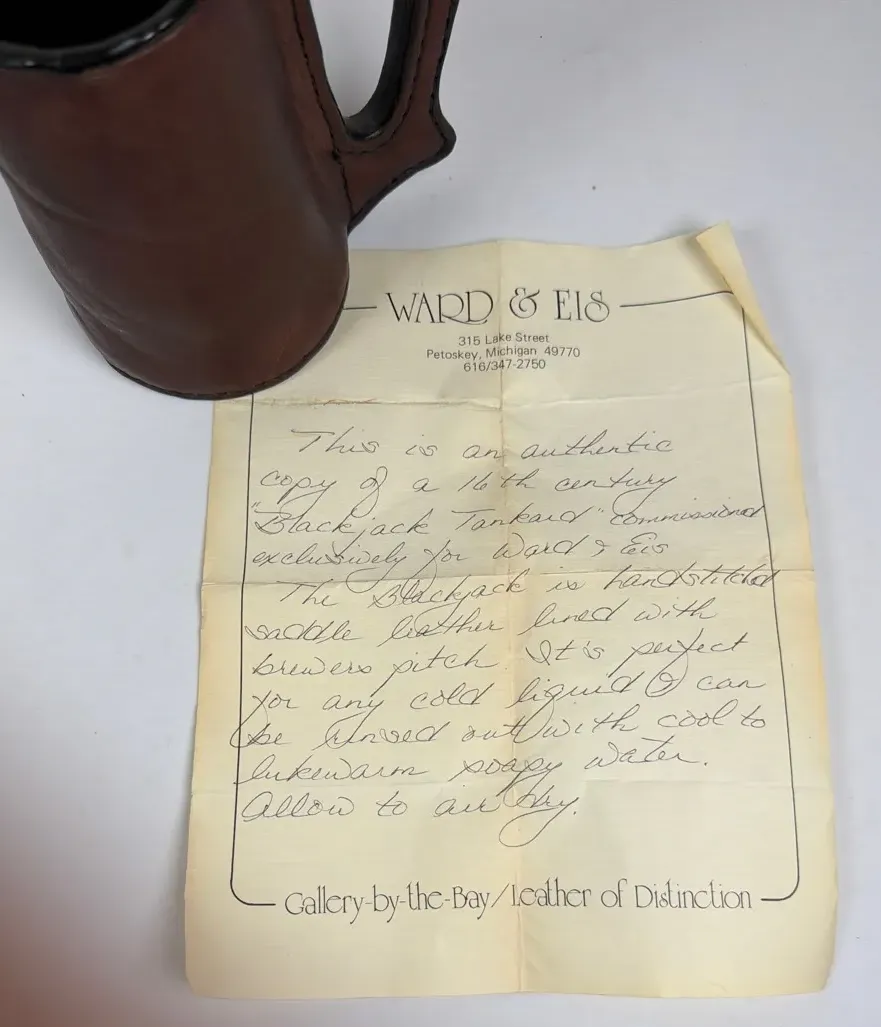 WARD & EIS
315 Lake Street
Petoskey, Michigan 49770
616/347-2750
This is an authentic
copy of a 16th century
"Blackjack Tankard" commissioned
exclusively for Ward & Eis
The Blackjack is handstitched
saddle leather lined with
brewers pitch. It's perfect
for any cold liquid & can
be rinsed out with cool to
lukewarm soapy water.
Allow to air dry.
Gallery-by-the-Bay/Leather of Distinction